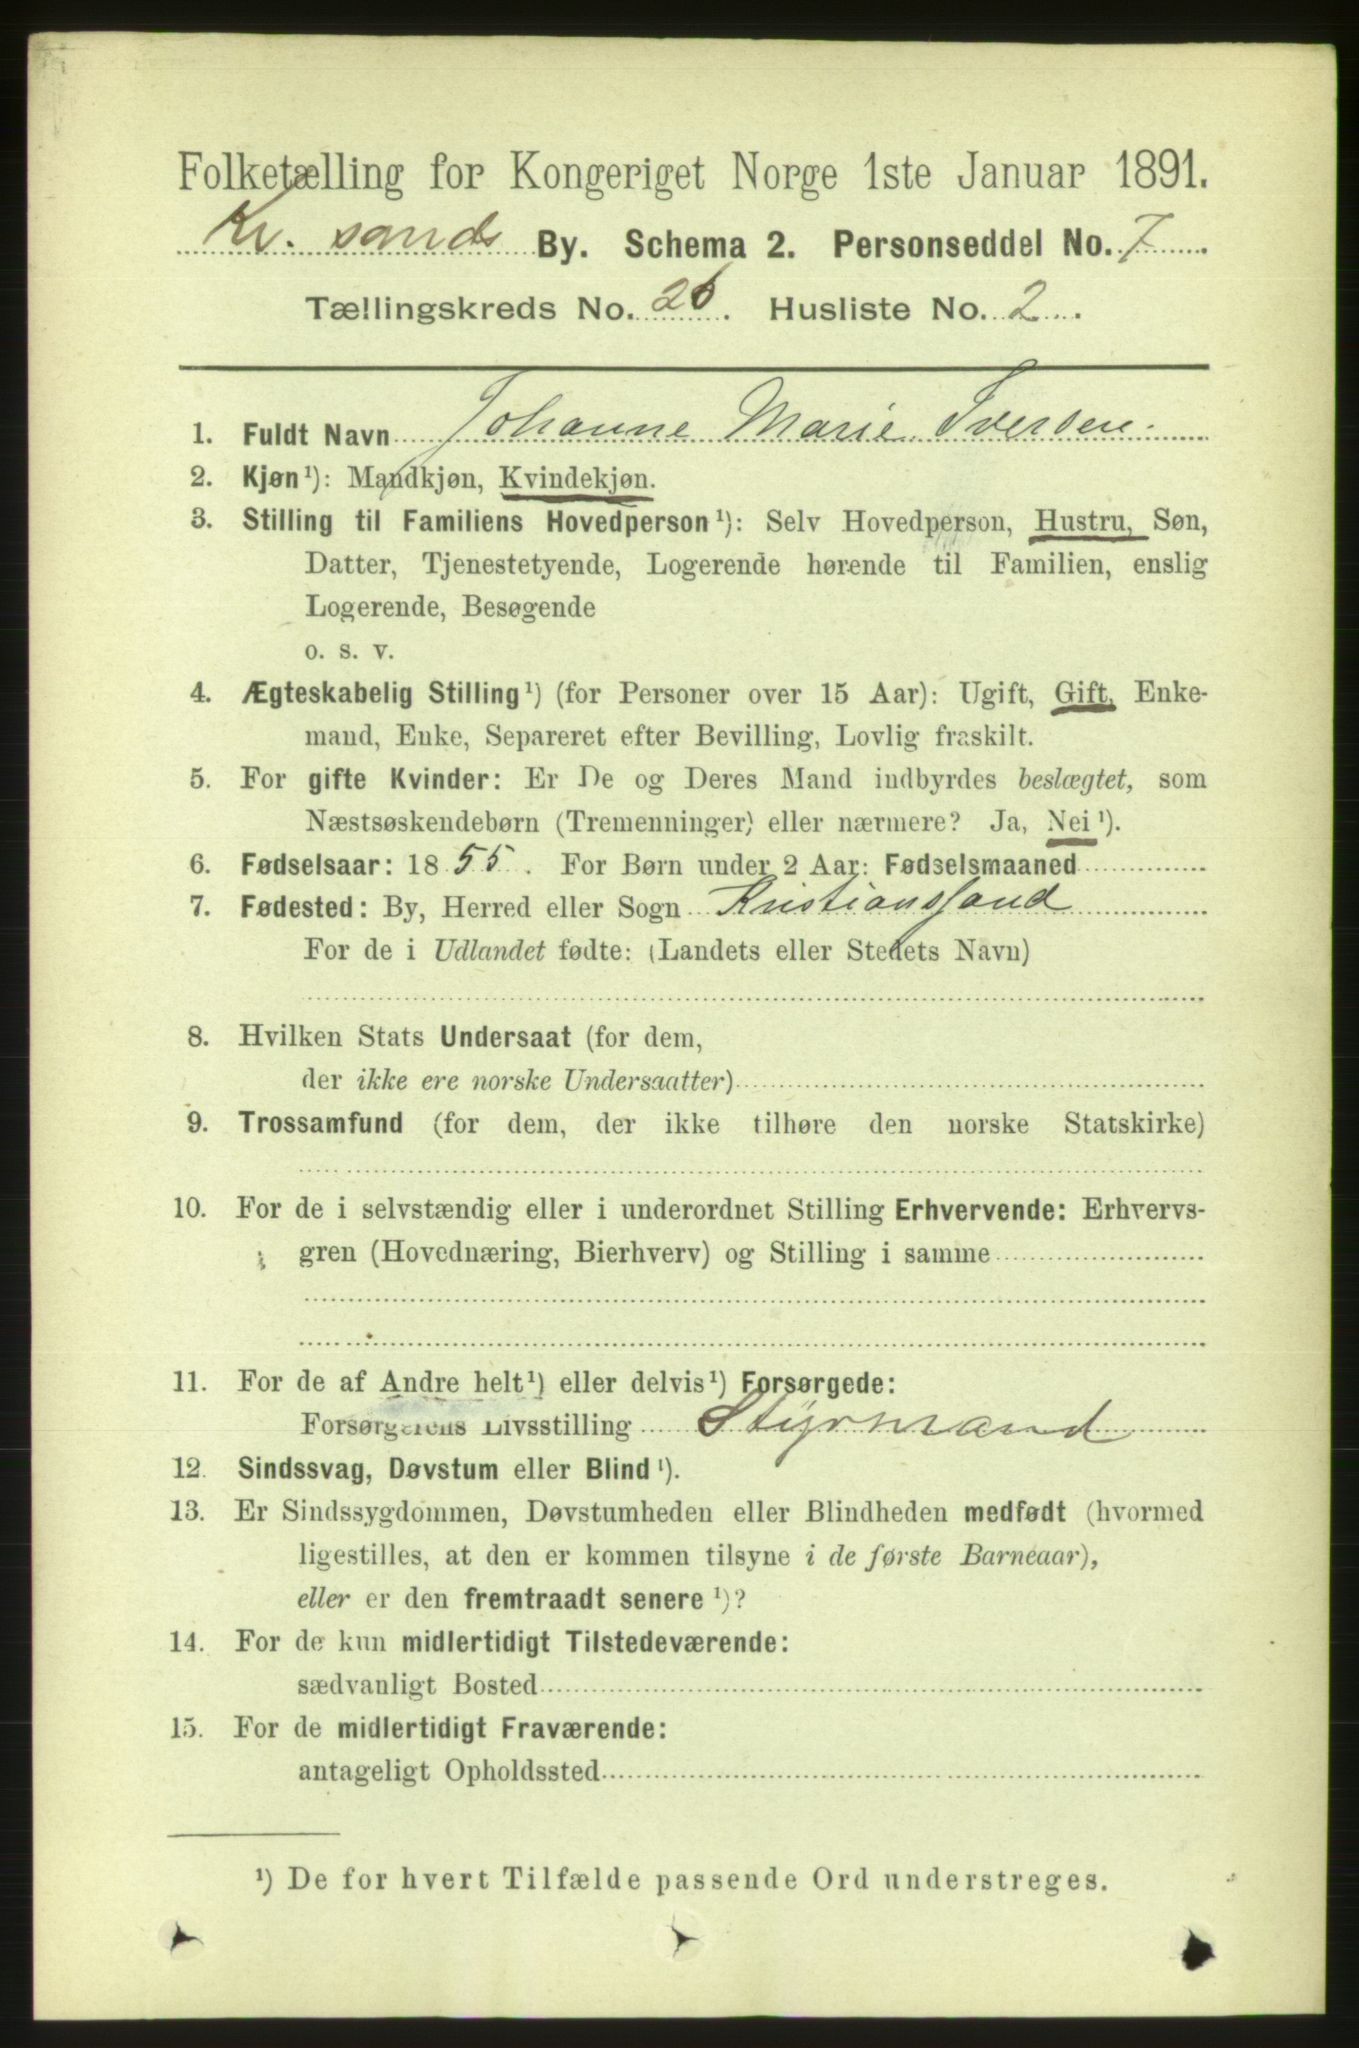 Folketælling for Kongeriget Norge 1ste Januar 1891.
Kr. sands By. Schema 2. Personseddel No. 7
Tællingskreds No. 26. Husliste No. 2.
1. Fuldt Navn Johanne Marie Iversen.
2. Kjøn¹): Mandkjøn, Kvindekjøn.
3. Stilling til Familiens Hovedperson¹): Selv Hovedperson, Hustru, Søn,
Datter, Tjenestetyende, Logerende hørende til Familien, enslig
Logerende, Besøgende
o. s. v.
4. Ægteskabelig Stilling¹) (for Personer over 15 Aar): Ugift, Gift, Enke-
mand, Enke, Separeret efter Bevilling, Lovlig fraskilt.
5. For gifte Kvinder: Er De og Deres Mand indbyrdes beslægtet, som
Næstsøskendebørn (Tremenninger) eller nærmere? Ja, Nei¹).
6. Fødselsaar: 1855. For Børn under 2 Aar: Fødselsmaaned
7. Fødested: By, Herred eller Sogn Kristianssand
For de i Udlandet fødte: (Landets eller Stedets Navn)
8. Hvilken Stats Undersaat (for dem,
der ikke ere norske Undersaatter)
9. Trossamfund (for dem, der ikke tilhøre den norske Statskirke)
10. For de i selvstændig eller i underordnet Stilling Erhvervende: Erhvervs-
gren (Hovednæring, Bierhverv) og Stilling i samme
11. For de af Andre helt¹) eller delvis¹) Forsørgede:
Forsørgerens Livsstilling Styrmand
12. Sindssvag, Døvstum eller Blind¹).
13. Er Sindssygdommen, Døvstumheden eller Blindheden medfødt (hvormed
ligestilles, at den er kommen tilsyne i de første Barneaar),
eller er den fremtraadt senere¹)?
14. For de kun midlertidigt Tilstedeværende:
sædvanligt Bosted
15. For de midlertidigt Fraværende:
antageligt Opholdssted
¹) De for hvert Tilfælde passende Ord understreges.